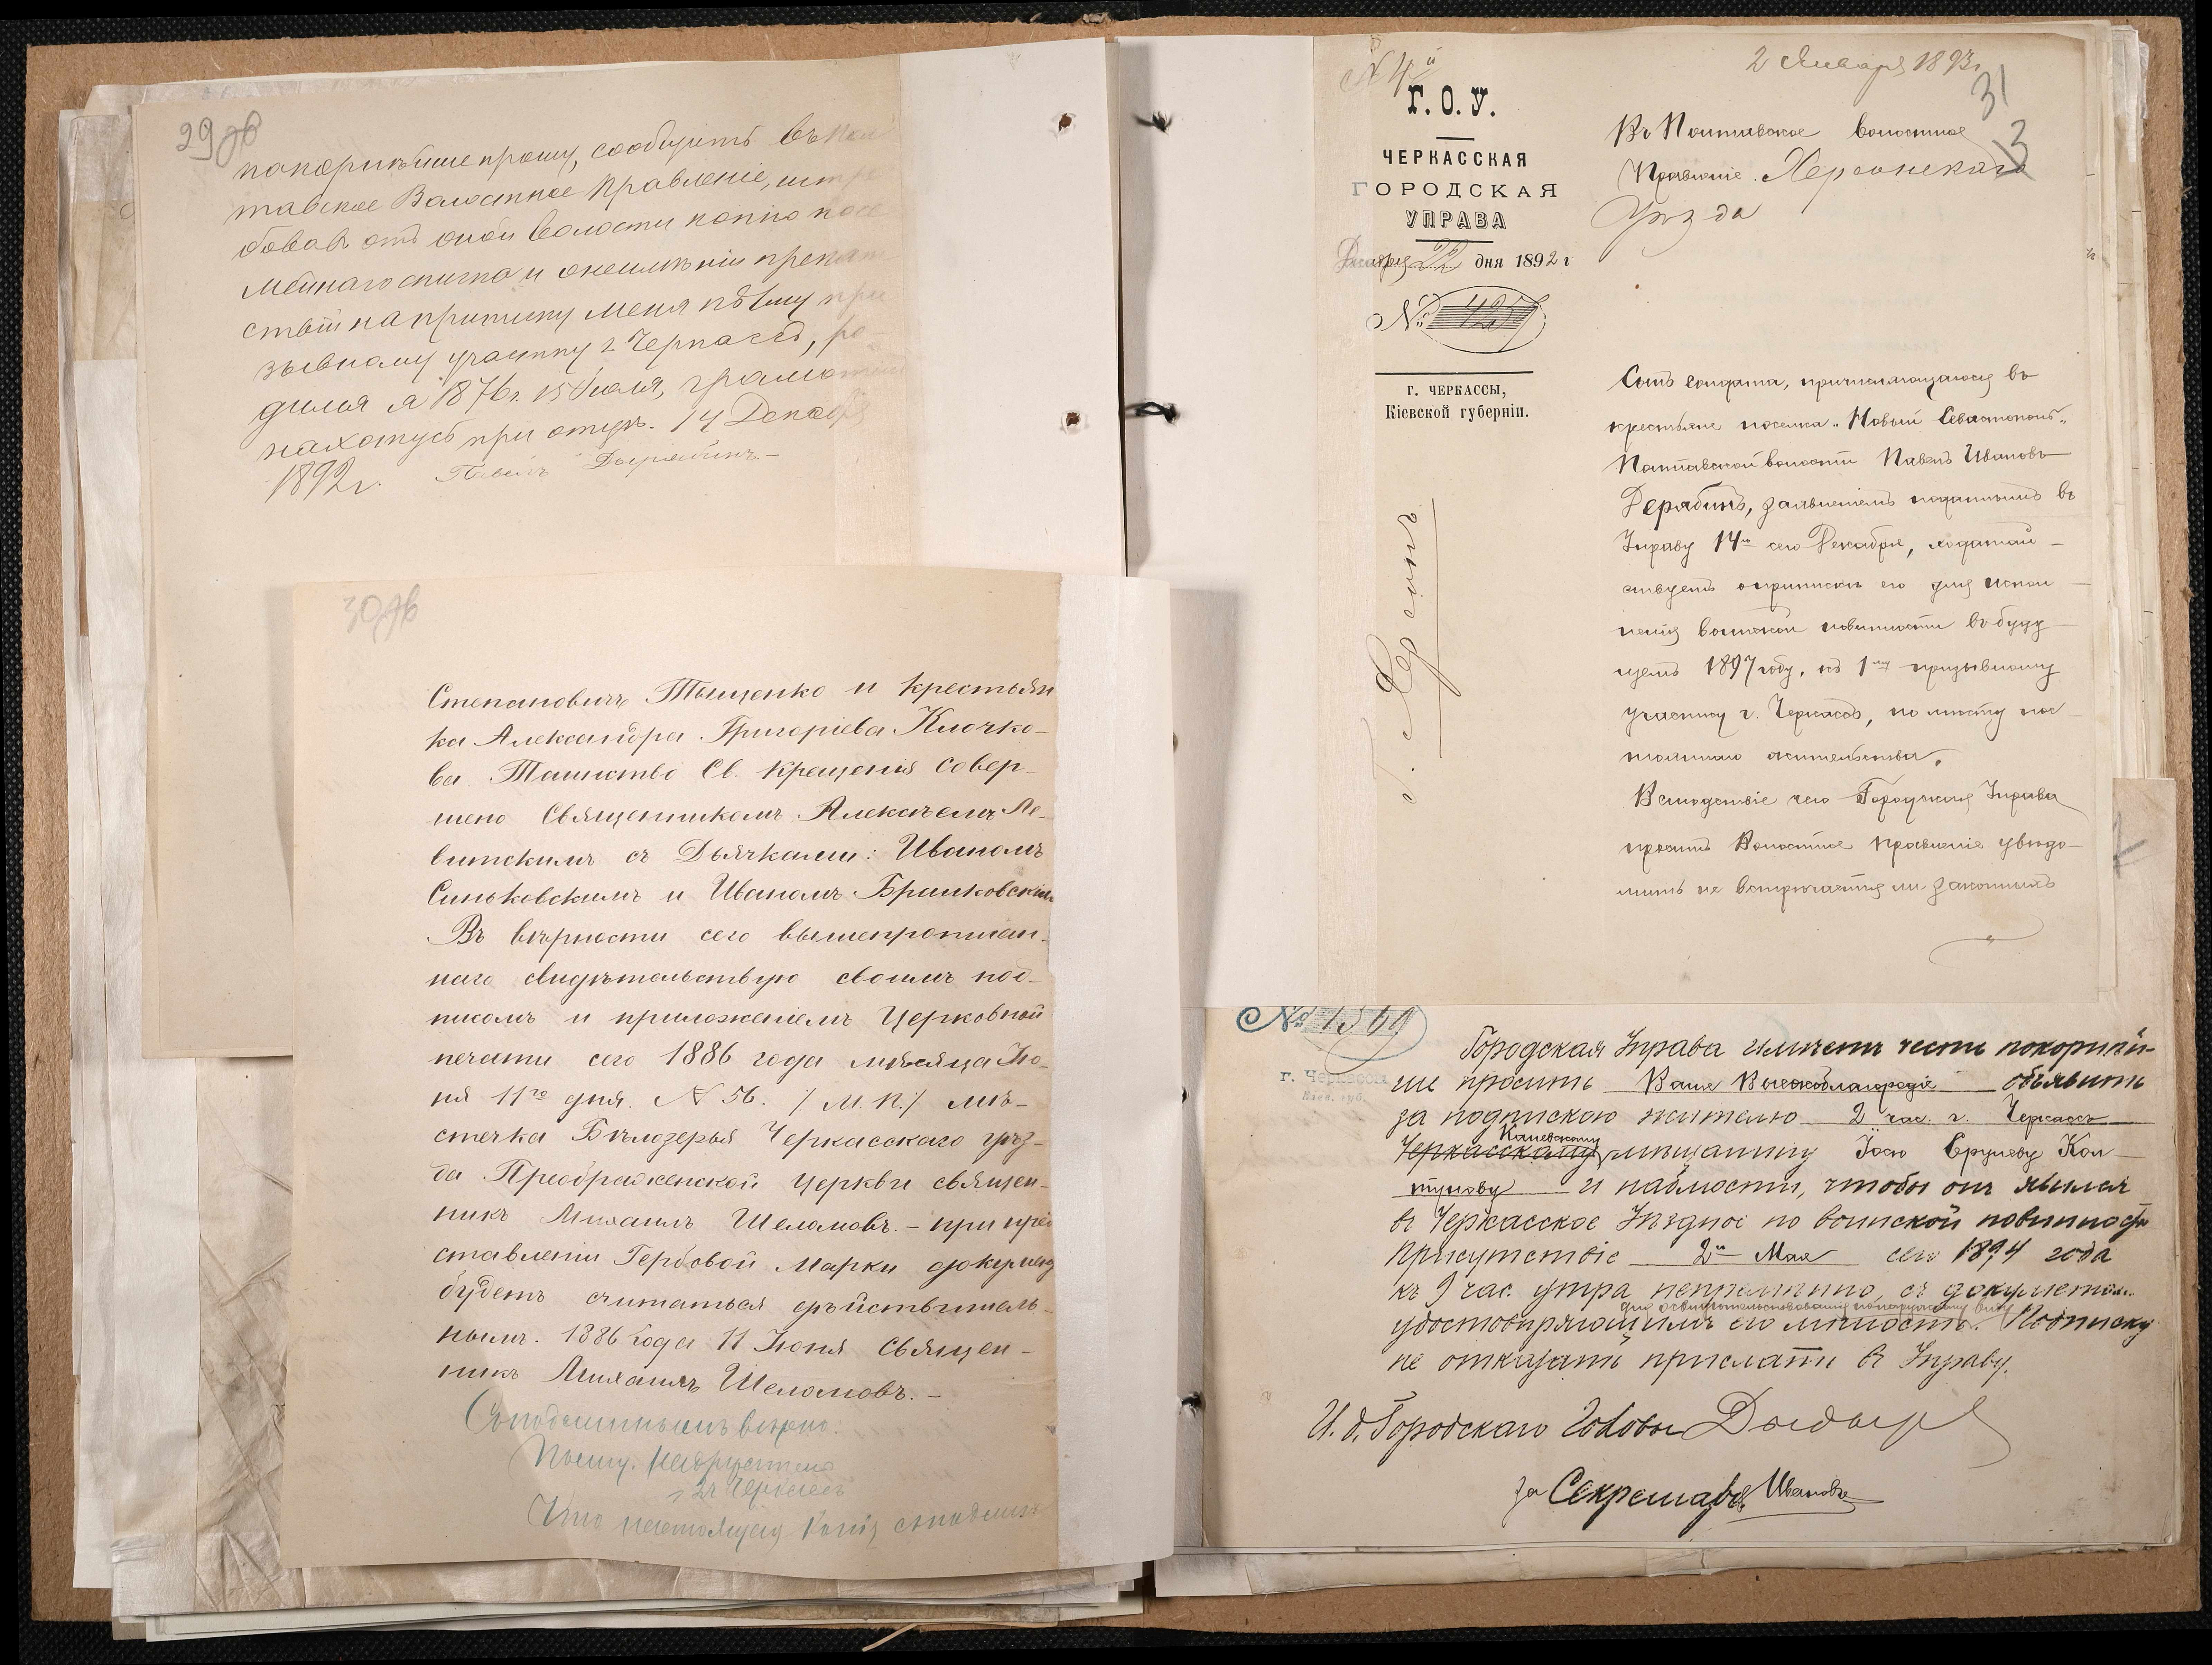 29 об
покорнѣйше прошу, сообщить въ Пол
тавское Волостное Правленіе, истре
бовавъ отъ оной волости копію посе
мейнаго списка и о неимѣніи препят
ствій на приписку меня къ 1му при
зывному участку г. Черкассъ, ро-
дился я 1876 г. 15 Іюля, грамотный
нахожусь при отцѣ. 14 Декабря
1892 г. Павелъ Дерябинъ.-
30 об
Степановичъ Тыщенко и крестьян
ка Александра Григоріева Клочко-
ва. Таинство Св. Крещенія совер-
шено Священникомъ Алексѣемъ Ле-
витскимъ съ Дьячками: Иваномъ
Синьковскимъ и Иваномъ Браиковским
Въ вѣрности сего вышепрописан-
наго свидѣтельствую своимъ под-
писомъ и приложеніемъ Церковной
печати сего 1886 года мѣсяца Ію-
ня 11го дня. № 56. /М. П./ мѣ-
стечка Бѣлозерья Черкасскаго уѣз-
да Преображенской Церкви священ-
никъ Михаилъ Шеломовъ. - при пред
ставленіи Гербовой Марки документ
будетъ считаться дѣйствитель-
нымъ. 1886 года 11 Іюня Священ-
никъ Михаилъ Шеломовъ. -
Съ подлиннымъ вѣрно:
г. Черкассъ
Что настоящая копія съ подлин
2 Января 1893 г
31
3
Г. О. У.
ЧЕРКАССКАЯ
ГОРОДСКАЯ
УПРАВА
Декабря 22 дня 1892 г
№ 4259
г. ЧЕРКАССЫ,
Кіевской губерніи.
Въ Полтавское Волостное
Правленіе. Херсонскаго
Уѣзда
Сынъ солдата, причисляющагося въ
крестьяне поселка "Новый Севастополь"
Полтавской волости Павелъ Ивановъ
Дерябинъ, заявленіемъ поданнымъ въ
Управу 14го сего Декабря, ходатай-
ствуетъ о припискѣ его для испол-
ненія воинской повинности въ буду-
щемъ 1897 году, къ 1му призывному
участку г. Черкассъ, по мѣсту пос-
тояннаго жительства.
Вслѣдствіе чего Городская Управа
проситъ Волостное Правленіе увѣдо-
мить не встрѣчается ли законныхъ
№ 1569
г. Черкассы
Кіев. губ.
Городская Управа имѣетъ честь покорнѣй-
ше просить Ваше Высокоблагородіе объявить
за подпискою жителю 2 час. г. Черкассъ
Каневскому
Черкасскому мѣщанину Іосю Срулеву Кол-
тунову и наблюсти, чтобы онъ явился
въ Черкасское Уѣздное по воинской повинности
Присутствіе 2го Мая сего 1894 года
къ 9 час. утра непремѣнно, съ документомъ
для освидѣтельствованія по наружному виду
удостовѣряющимъ его личность. Подписку
не отказать прислать въ Управу.
И. д. Городскаго Головы
За Секретаря Ивановъ